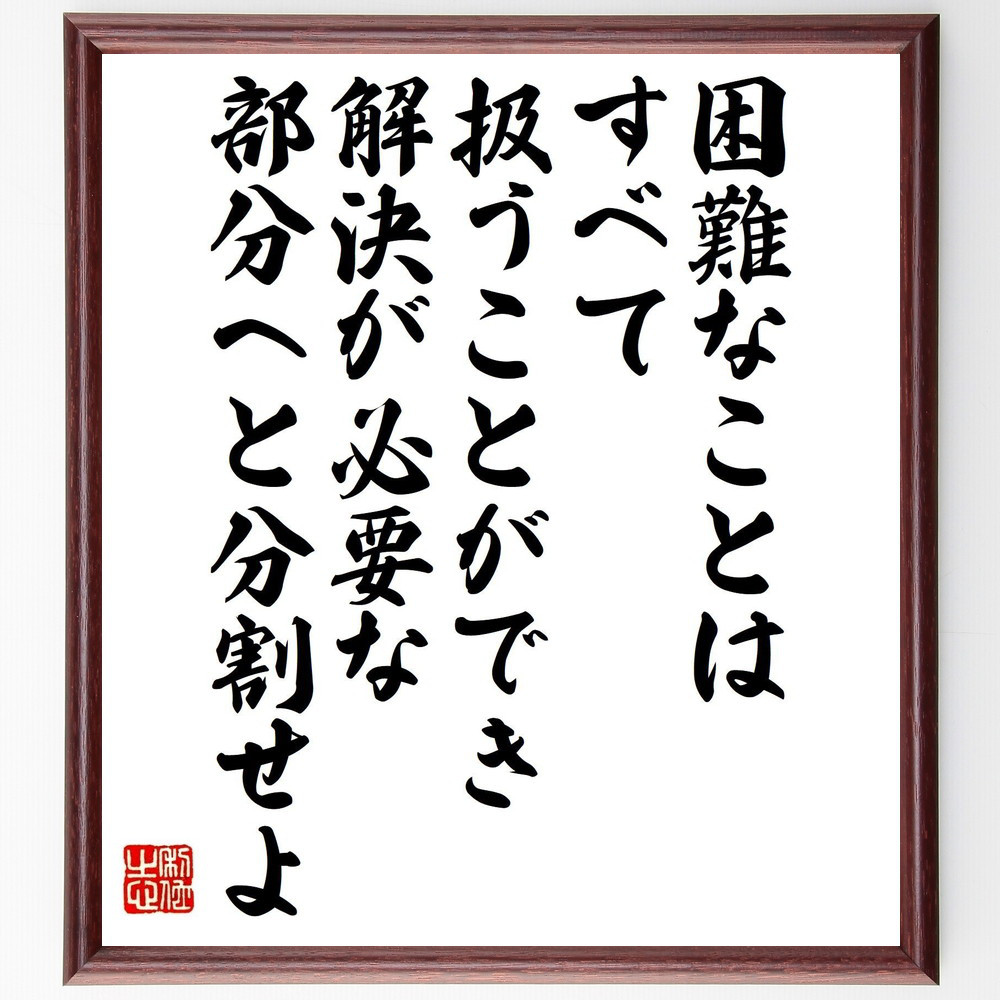 困難なことは
すべて
扱うことができ
解決が必要な
部分へと分割せよ